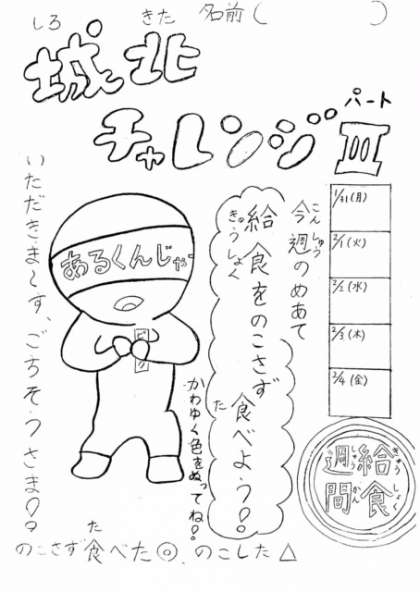 名前( )
しろ きた
城北
チャレンジ
パート
Ⅲ
1/31(月)
2/1(火)
2/2(水)
2/3(木)
2/4(金)
こんしゅう
今週のめあて
きゅうしょく
給食をのこさず
た
食べよう!!
あるくんじゃ
いただきま〜す、ごちそうさま!!
かわゆく色をぬってね!!
きゅうしょく
給食
しゅうかん
週間
た
のこさず食べた◎、のこした△